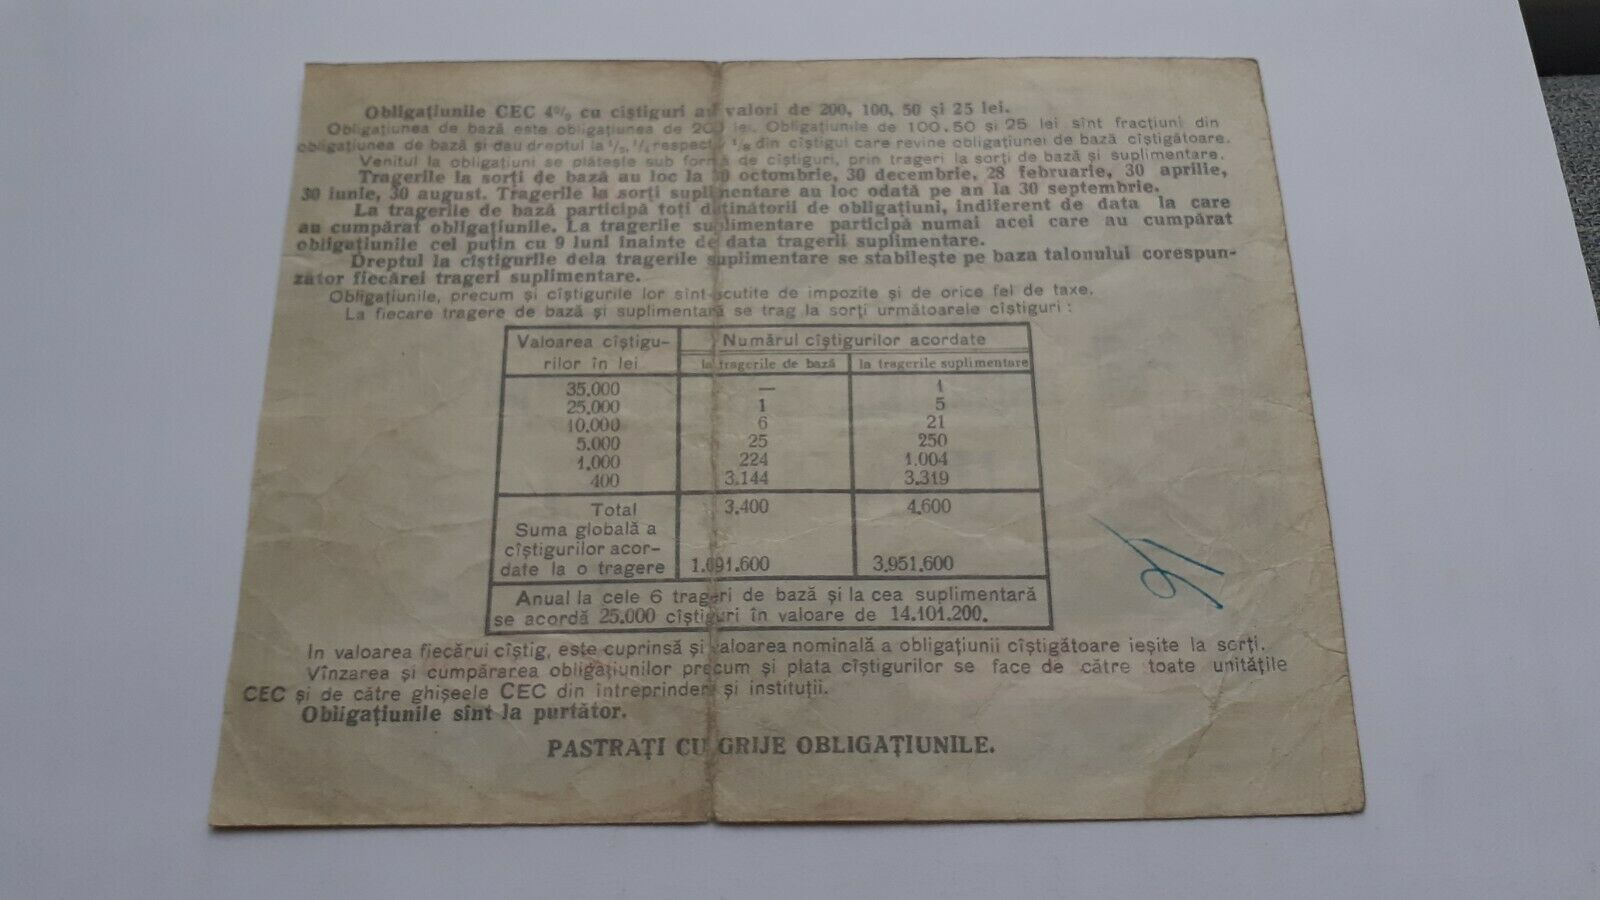 Obligațiunile CEC 4% cu cîștiguri au valori de 200, 100, 50 și 25 lei.
Obligațiunea de bază este obligațiunea de 200 lei. Obligațiunile de 100, 50 și 25 lei sînt fracțiuni din
obligațiunea de bază și dau dreptul la 1/2, 1/4 respectiv 1/8 din cîștigul care revine obligațiunei de bază cîștigătoare.
Venitul la obligațiuni se plătește sub formă de cîștiguri, prin trageri la sorți de bază și suplimentare.
Tragerile la sorți de bază au loc la 30 octombrie, 30 decembrie, 28 februarie, 30 aprilie,
30 iunie, 30 august. Tragerile la sorți suplimentare au loc odată pe an la 30 septembrie.
La tragerile de bază participă toți deținătorii de obligațiuni, indiferent de data la care
au cumpărat obligațiunile. La tragerile suplimentare participă numai acei care au cumpărat
obligațiunile cel puțin cu 9 luni înainte de data tragerii suplimentare.
Dreptul la cîștigurile dela tragerile suplimentare se stabilește pe baza talonului corespun-
zător fiecărei trageri suplimentare.
Obligațiunile, precum și cîștigurile lor sînt scutite de impozite și de orice fel de taxe.
La fiecare tragere de bază și suplimentară se trag la sorți următoarele cîștiguri :
Valoarea cîștigu- Numărul cîștigurilor acordate
rilor în lei la tragerile de bază la tragerile suplimentare
35.000 — 1
25.000 1 5
10.000 6 21
5.000 25 250
1.000 224 1.004
400 3.144 3.319
Total 3.400 4.600
Suma globală a
cîștigurilor acor-
date la o tragere 1.691.600 3.951.600
Anual la cele 6 trageri de bază și la cea suplimentară
se acordă 25.000 cîștiguri în valoare de 14.101.200.
In valoarea fiecărui cîștig, este cuprinsă și valoarea nominală a obligațiunii cîștigătoare ieșite la sorți.
Vînzarea și cumpărarea obligațiunilor precum și plata cîștigurilor se face de către toate unitățile
CEC și de către ghișeele CEC din întreprinderi și instituții.
Obligațiunile sînt la purtător.
PASTRAȚI CU GRIJE OBLIGAȚIUNILE.